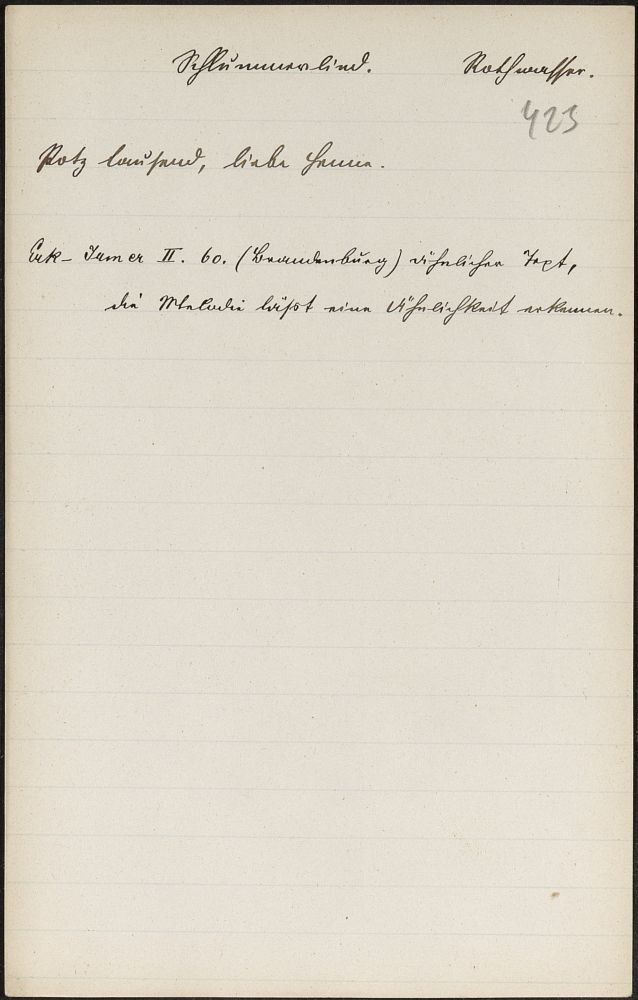 Schlummerlied. Rothwasser.
423
Potz tausend, liebe Henne.
Erk-Irmer II. 60. (Brandenburg) ähnlicher Text,
die Melodie läßt eine Ähnlichkeit erkennen.